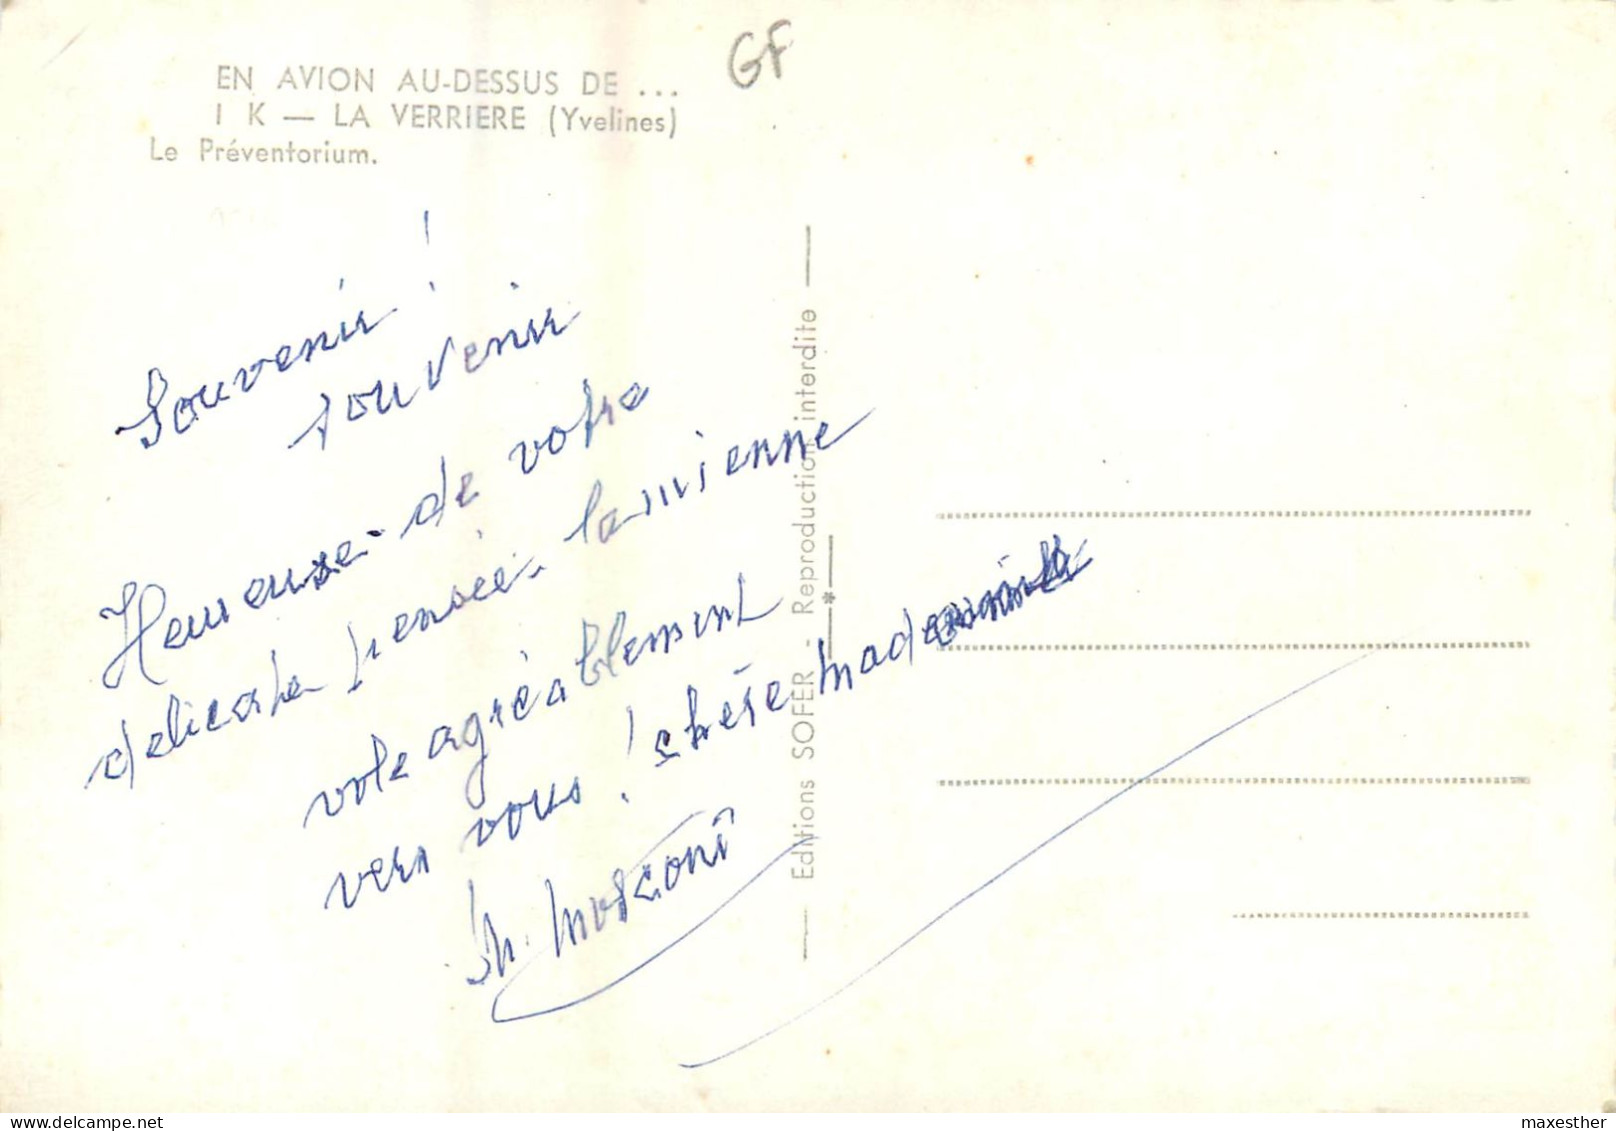 GF
EN AVION AU-DESSUS DE ...
I K — LA VERRIERE (Yvelines)
Le Préventorium.
Souvenir !
souvenir
Heureuse de votre
delicate pensée. la mienne
vole agréablement
vers vous ! chère
M. Mosconi
Editions SOFER - Reproduction interdite
delcampe.net
maxesther